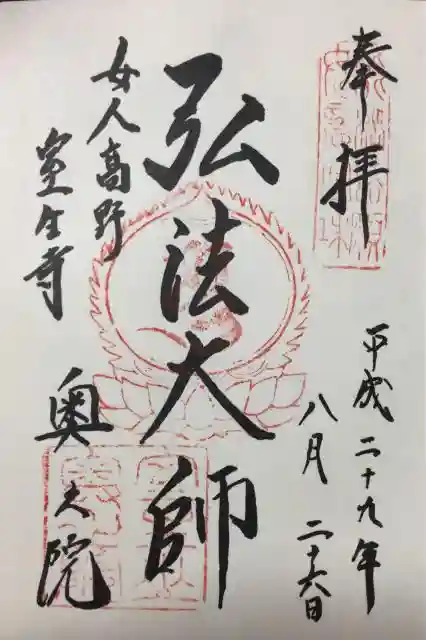 奉拝
平成二十九年
八月二十六日
弘法大師
女人高野
室生寺
奥之院